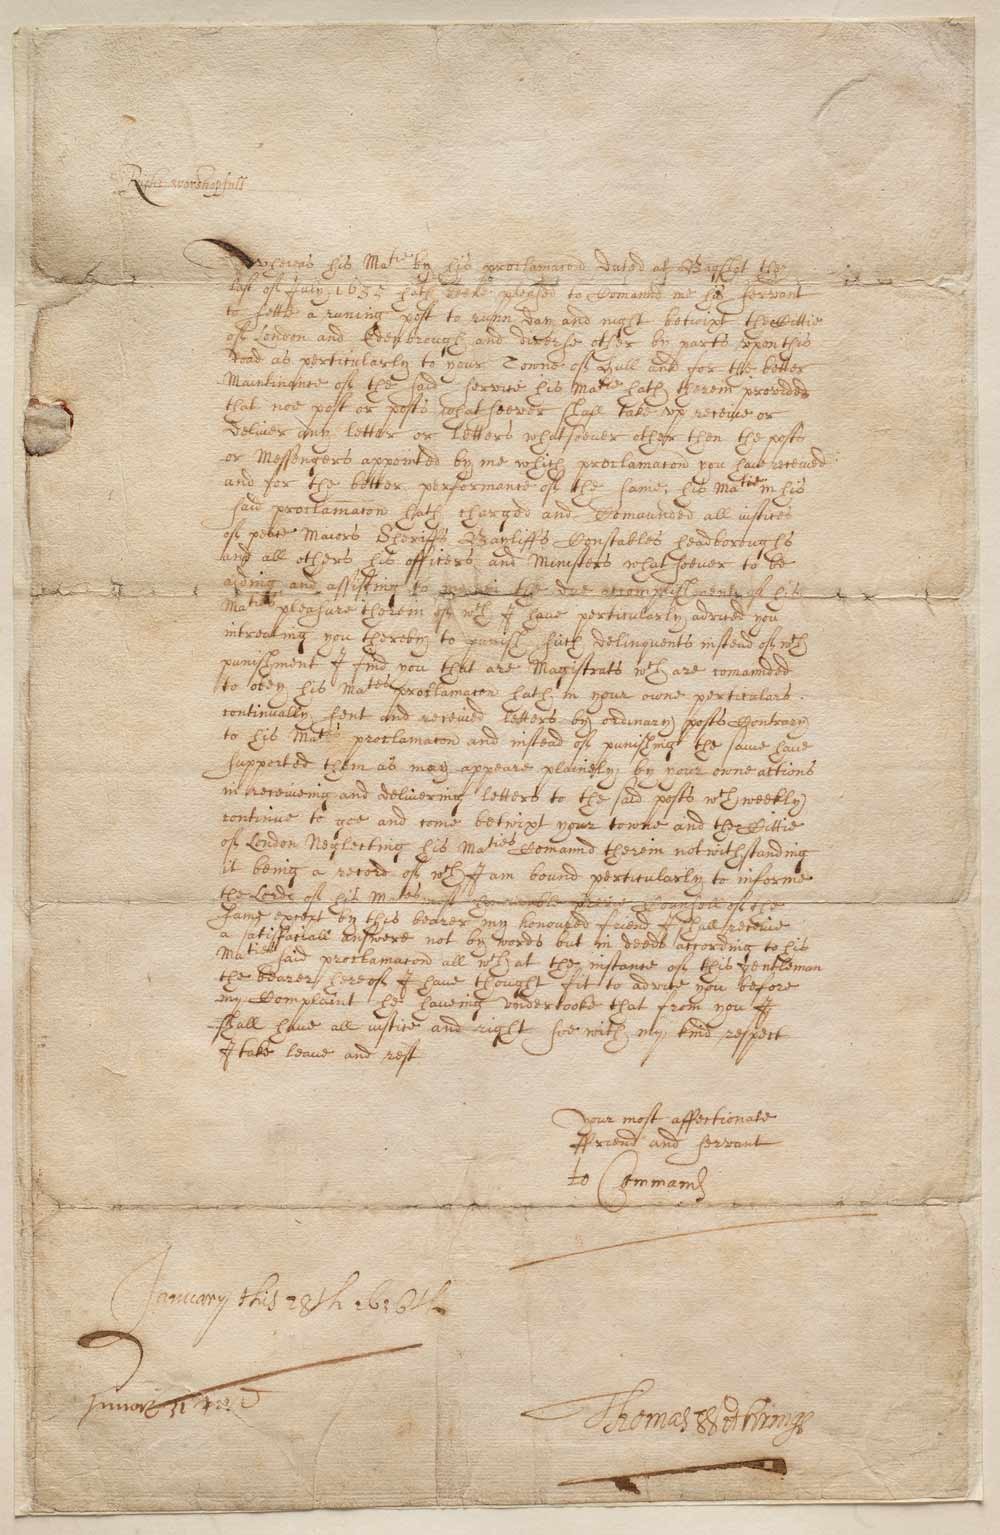 Right worshipfull
Whereas his Matie by his proclamacon dated at Bagshot the
last of July 1635 hath beene pleased to Comannd me his servant
to settle a runing post to runn day and night betwixt the Cittie
of London and Edenbrough and diverse other by parts vpon this
road as perticularly to your Towne of Hull and for the better
Maintinance of the said service his Matie hath therein provided
that noe post or posts whatsoever shall take vp receive or
deliver any letter or letters whatsoever other then the posts
or Messengers appointed by me which proclamacon you have received
and for the better performance of the same, his Matie in his
said proclamacon hath charged and Comaunded all iustices
of peace Maiors Sheriffs Bayliffs Constables headboroughs
and all others his officers and Ministers whatsoever to be
aiding and assisting to me in the due accomplishment of his
Maties pleasure therein of wch I have perticularly advised you
intreating you thereby to punish such delinquents instead of wch
punishment I find you that are Magistrats wch are comannded
to obey his Maties proclamacon hath in your owne perticulars
continually sent and received letters by ordinary posts Contrary
to his Maties proclamacon and instead of punishing the same have
supported them as may appeare plainely by your owne actions
in receiveing and delivering letters to the said posts wch weekly
continue to goe and come betwixt your towne and the Cittie
of London Neglecting his Maties Comannd therein notwithstanding
it being a record of wch I am bound perticularly to informe
the Lords of his Maties most honorable privie Counsell of the
same except by this bearer my honoured friend I shall receive
a satisfactiall answere not by words but in deeds according to his
Maties said proclamacon all wch at the instance of this gentleman
the bearer hereof I have thought fit to advise you before
my Complaint he haveing vndertooke that from you I
shall have all iustice and right soe with my kind respect
I take leave and rest
your most affectionate
ffriend and servant
to Command
January this 28th 1636th
Thomas Witherings